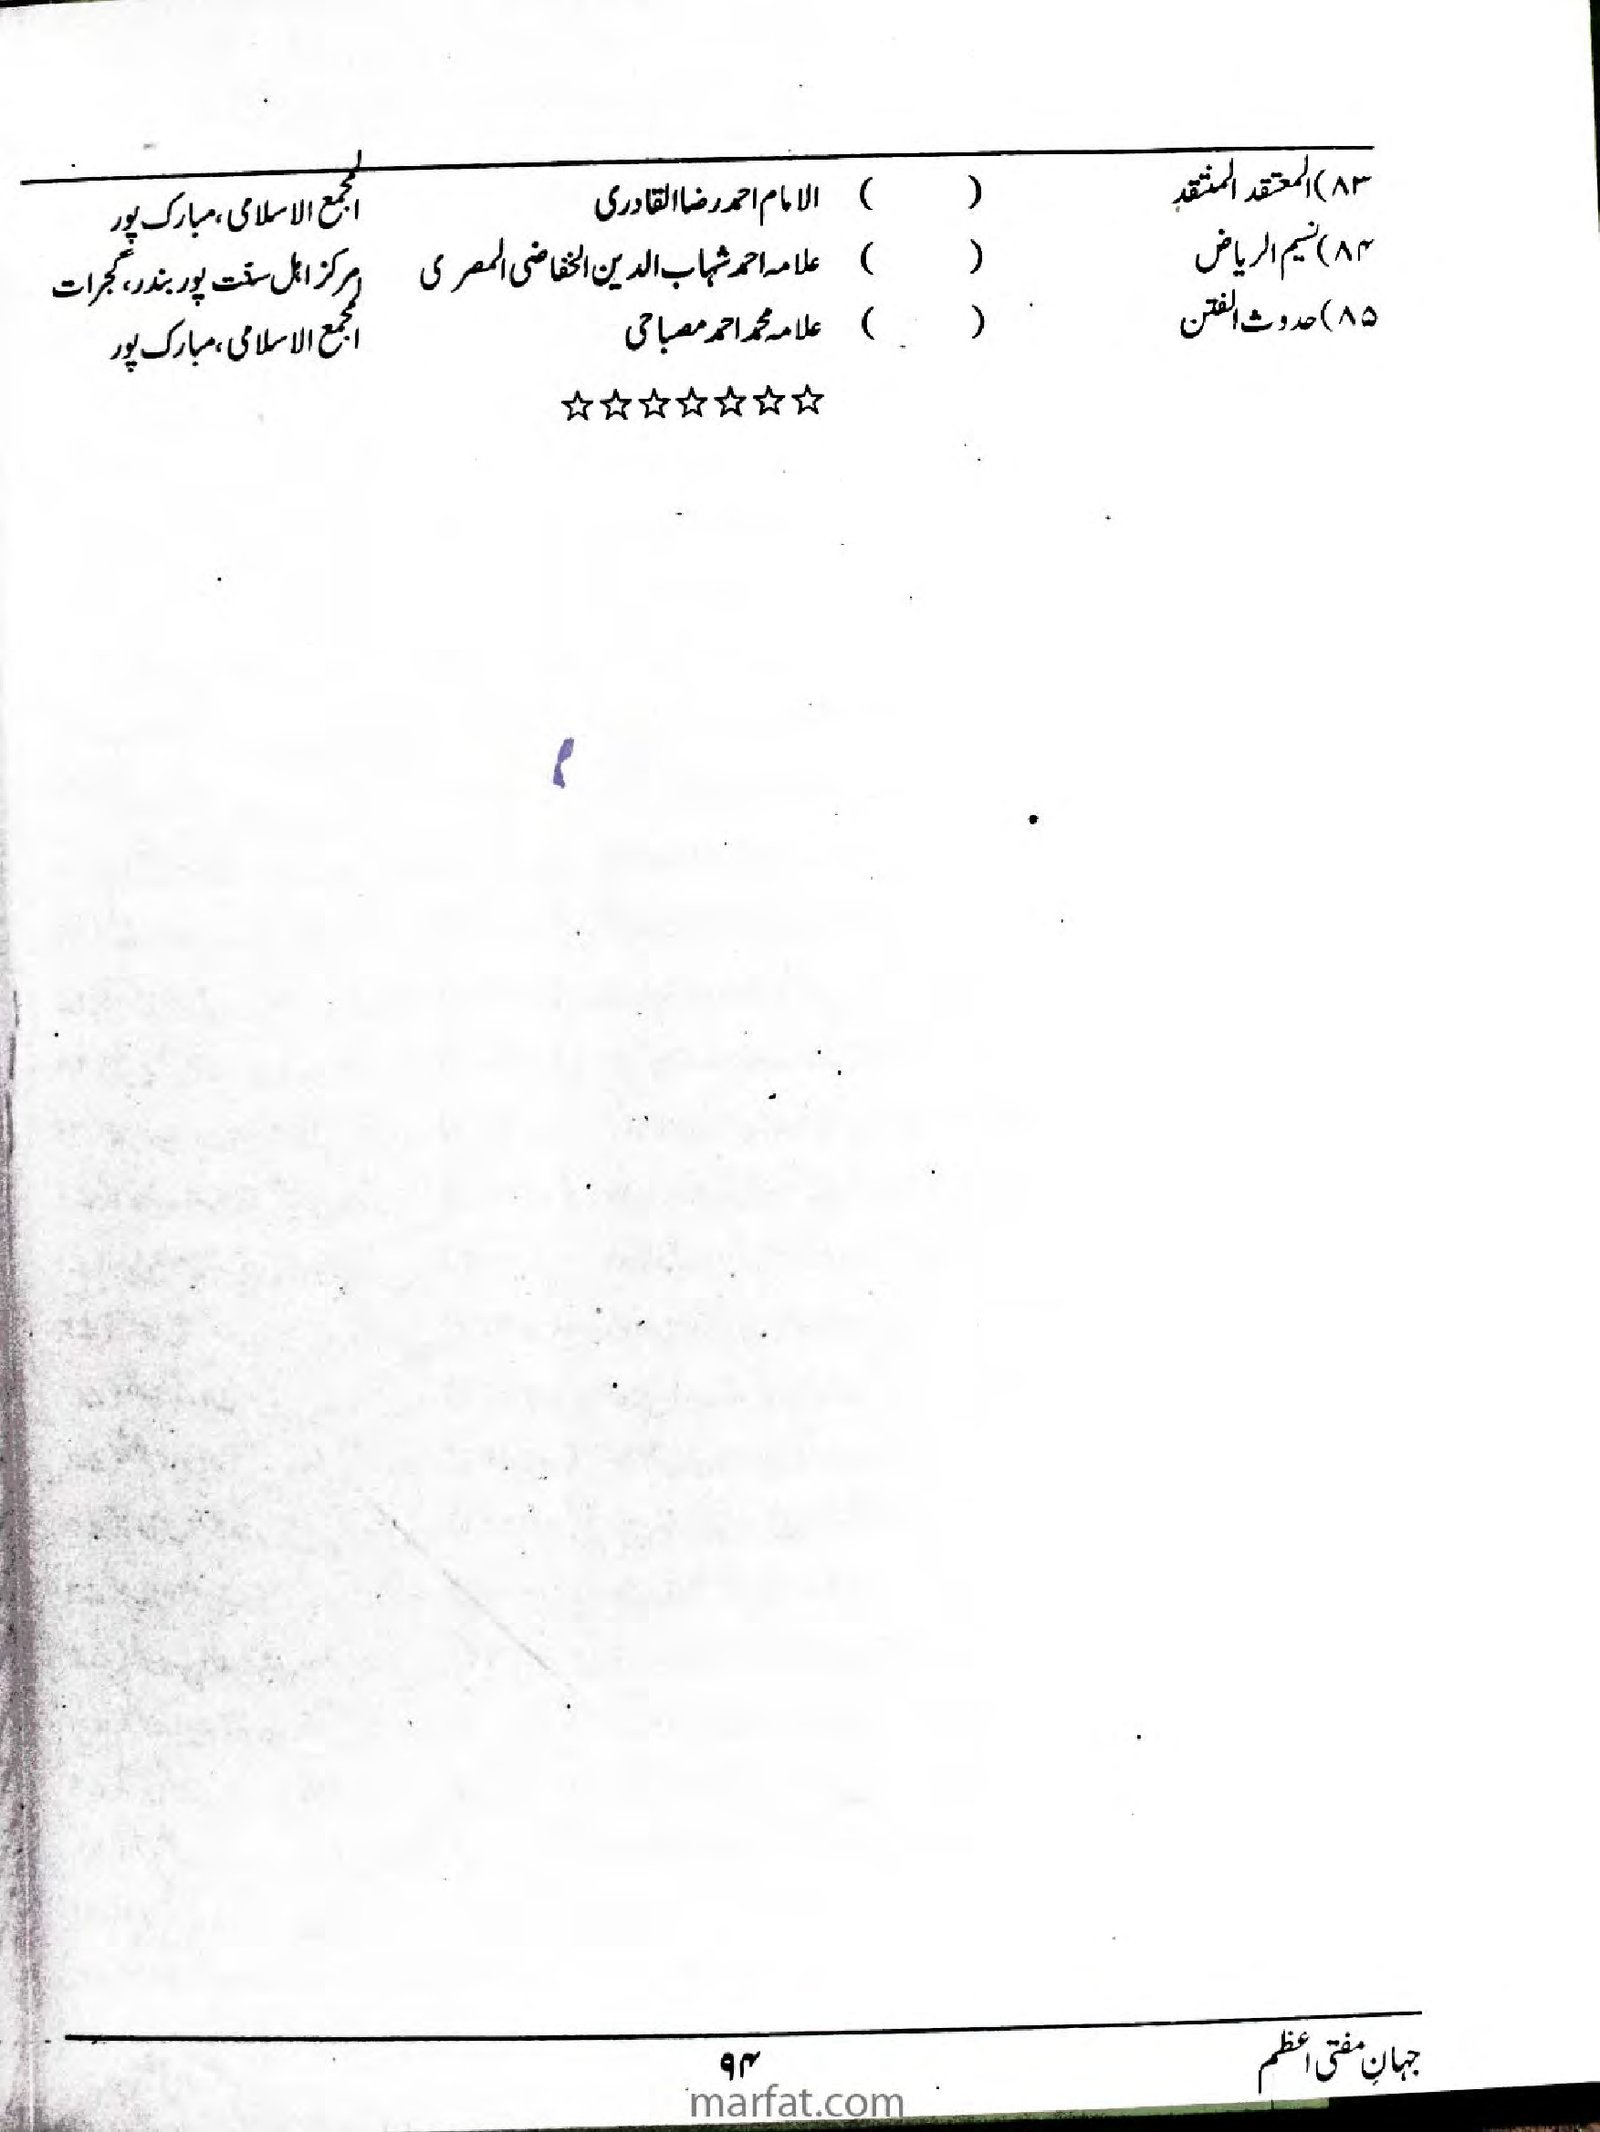 ۸۳)المعتقد المنتقد ( ) الامام احمد رضا القادری المجمع الاسلامی، مبارک پور
۸۴)نسیم الریاض ( ) علامہ احمد شہاب الدین الخفاضی المصری مرکز اہل سنت پور بندر، گجرات
۸۵)حدوث الفتن ( ) علامہ محمد احمد مصباحی المجمع الاسلامی، مبارک پور
☆☆☆☆☆☆☆
جہانِ مفتی اعظم ۹۴
marfat.com